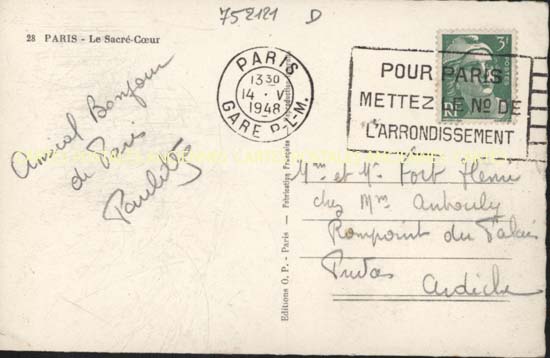 752121 D
28 PARIS - Le Sacré-Cœur
Amical Bonjour
de Paris
Paulette
Editions O. P. - Paris - Fabrication Française
PARIS
13 30
14 · V
1948
GARE P.-L-M.
3F
RF
POUR PARIS
METTEZ LE No DE
L'ARRONDISSEMENT
Mme et Mr Fort Henri
chez Mme
Rompoint du Palais
Privas
Ardèche